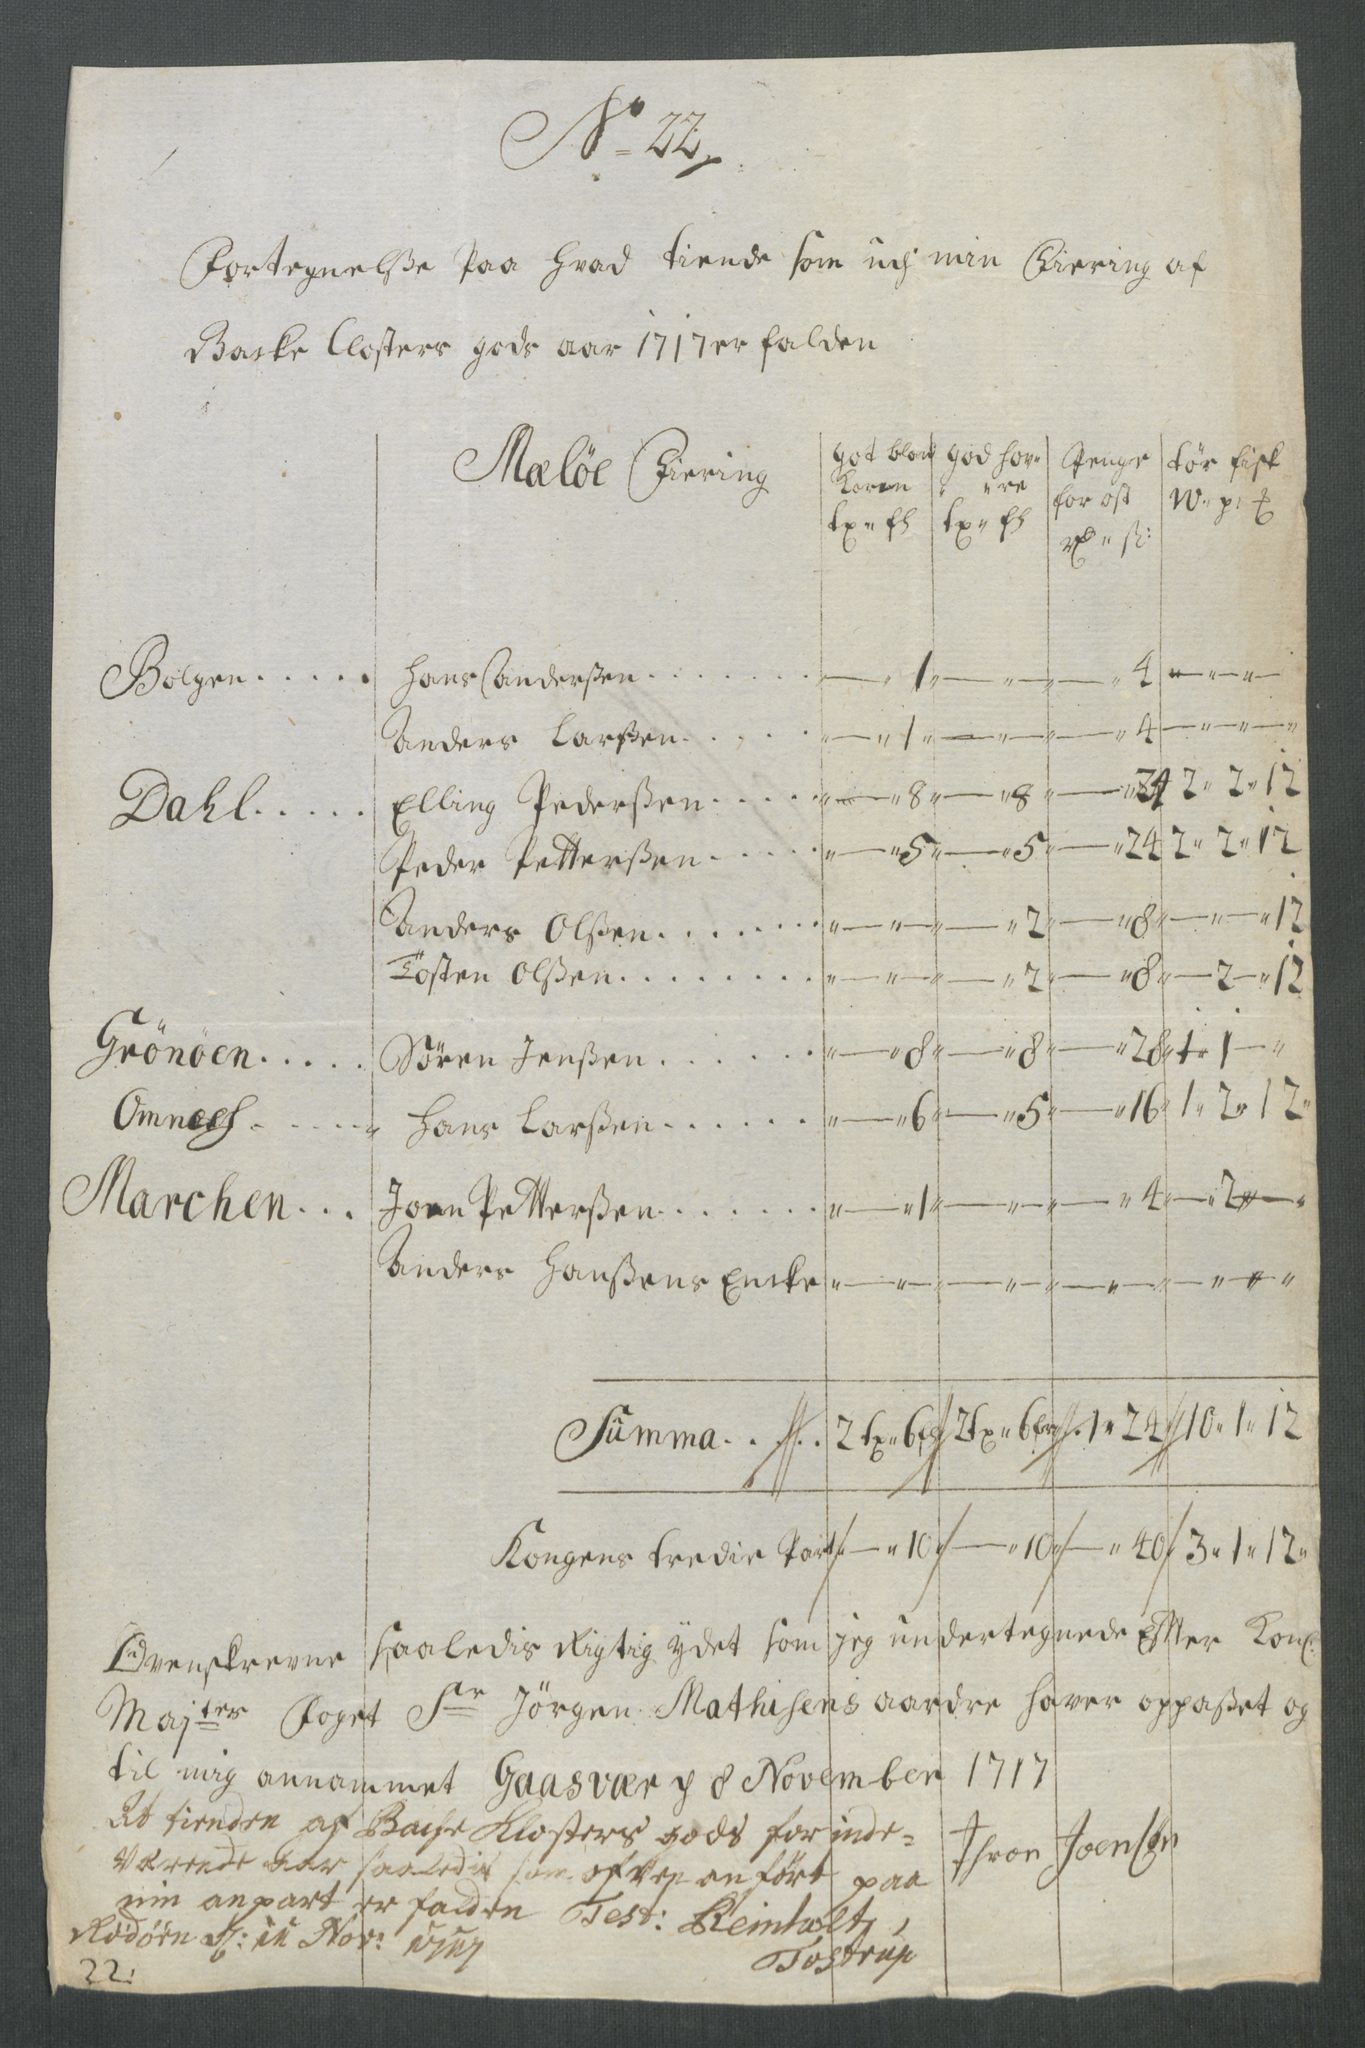 No 22
Fortegnelsse Paa hvad tiende som udj min Fiering af
Backe Closters gods aar 1717 er falden
Meløe Fiering
got bland Korn tx " fh
god hav" " re tx " fh
Penge for ost rd " sk:
tör fisk W " p "
Bolgen . . . . . Hans Anderssen . . . . . . . " — " 1 " — " " — " 4 " — " — " —
Anders Larssen . . . . . " — " 1 " — " " — " 4 — " — " — "
Dahl . . . . . Elling Pederssen . . . . . " — " 8 " — " 8 " — " 24 2 " 2 " 12
Peder Petterssen . . . . . " — " 5 " — " 5 " — " 24 2 " 2 " 12
Anders Olssen . . . . . . . " — " " — " 2 " — " 8 " — " — " 12
Tosten Olssen . . . . . . . . " — " " — " 2 " — " 8 " — 2 — " 12
Grönöen . . . . . Sören Jenssen . . . . . . " — " 8 " — " 8 " — " 28 " 1 " 1 — "
Omnes . . . . . Hans Larssen . . . . . . " — " 6 " — " 5 " — " 16 " 1 " 2 " 12 "
Marchen . . . Joen Petterssen . . . . . . . " — " 1 " — " " — " 4 " — " 2 " — "
Anders Hanssens Encke " — " " — " " — " " — " " "
Summa . . . . . 2 tx " 6 fh 2 tx " 6 fh " 1 " 24 10 " 1 " 12
Kongens tredie Part " — " 10 " — " 10 " — " 40 " 3 " 1 " 12 "
Ovenskrevne saaledis Rigtig ydet som jeg undertegnede Efter Kong:
Majters Foget Sr Jörgen Mathisens aardre haver oppasset og
til mig annammet Gaasvær d 8 November 1717
Thron Joensen
At tienden af Backe Klosters gods for inde=
værende aar saaledis som ofven anfört paa
min anpart er falden Test: Reinholt
Tostrup
Rödöen d: 11 Nov: 1717
22: